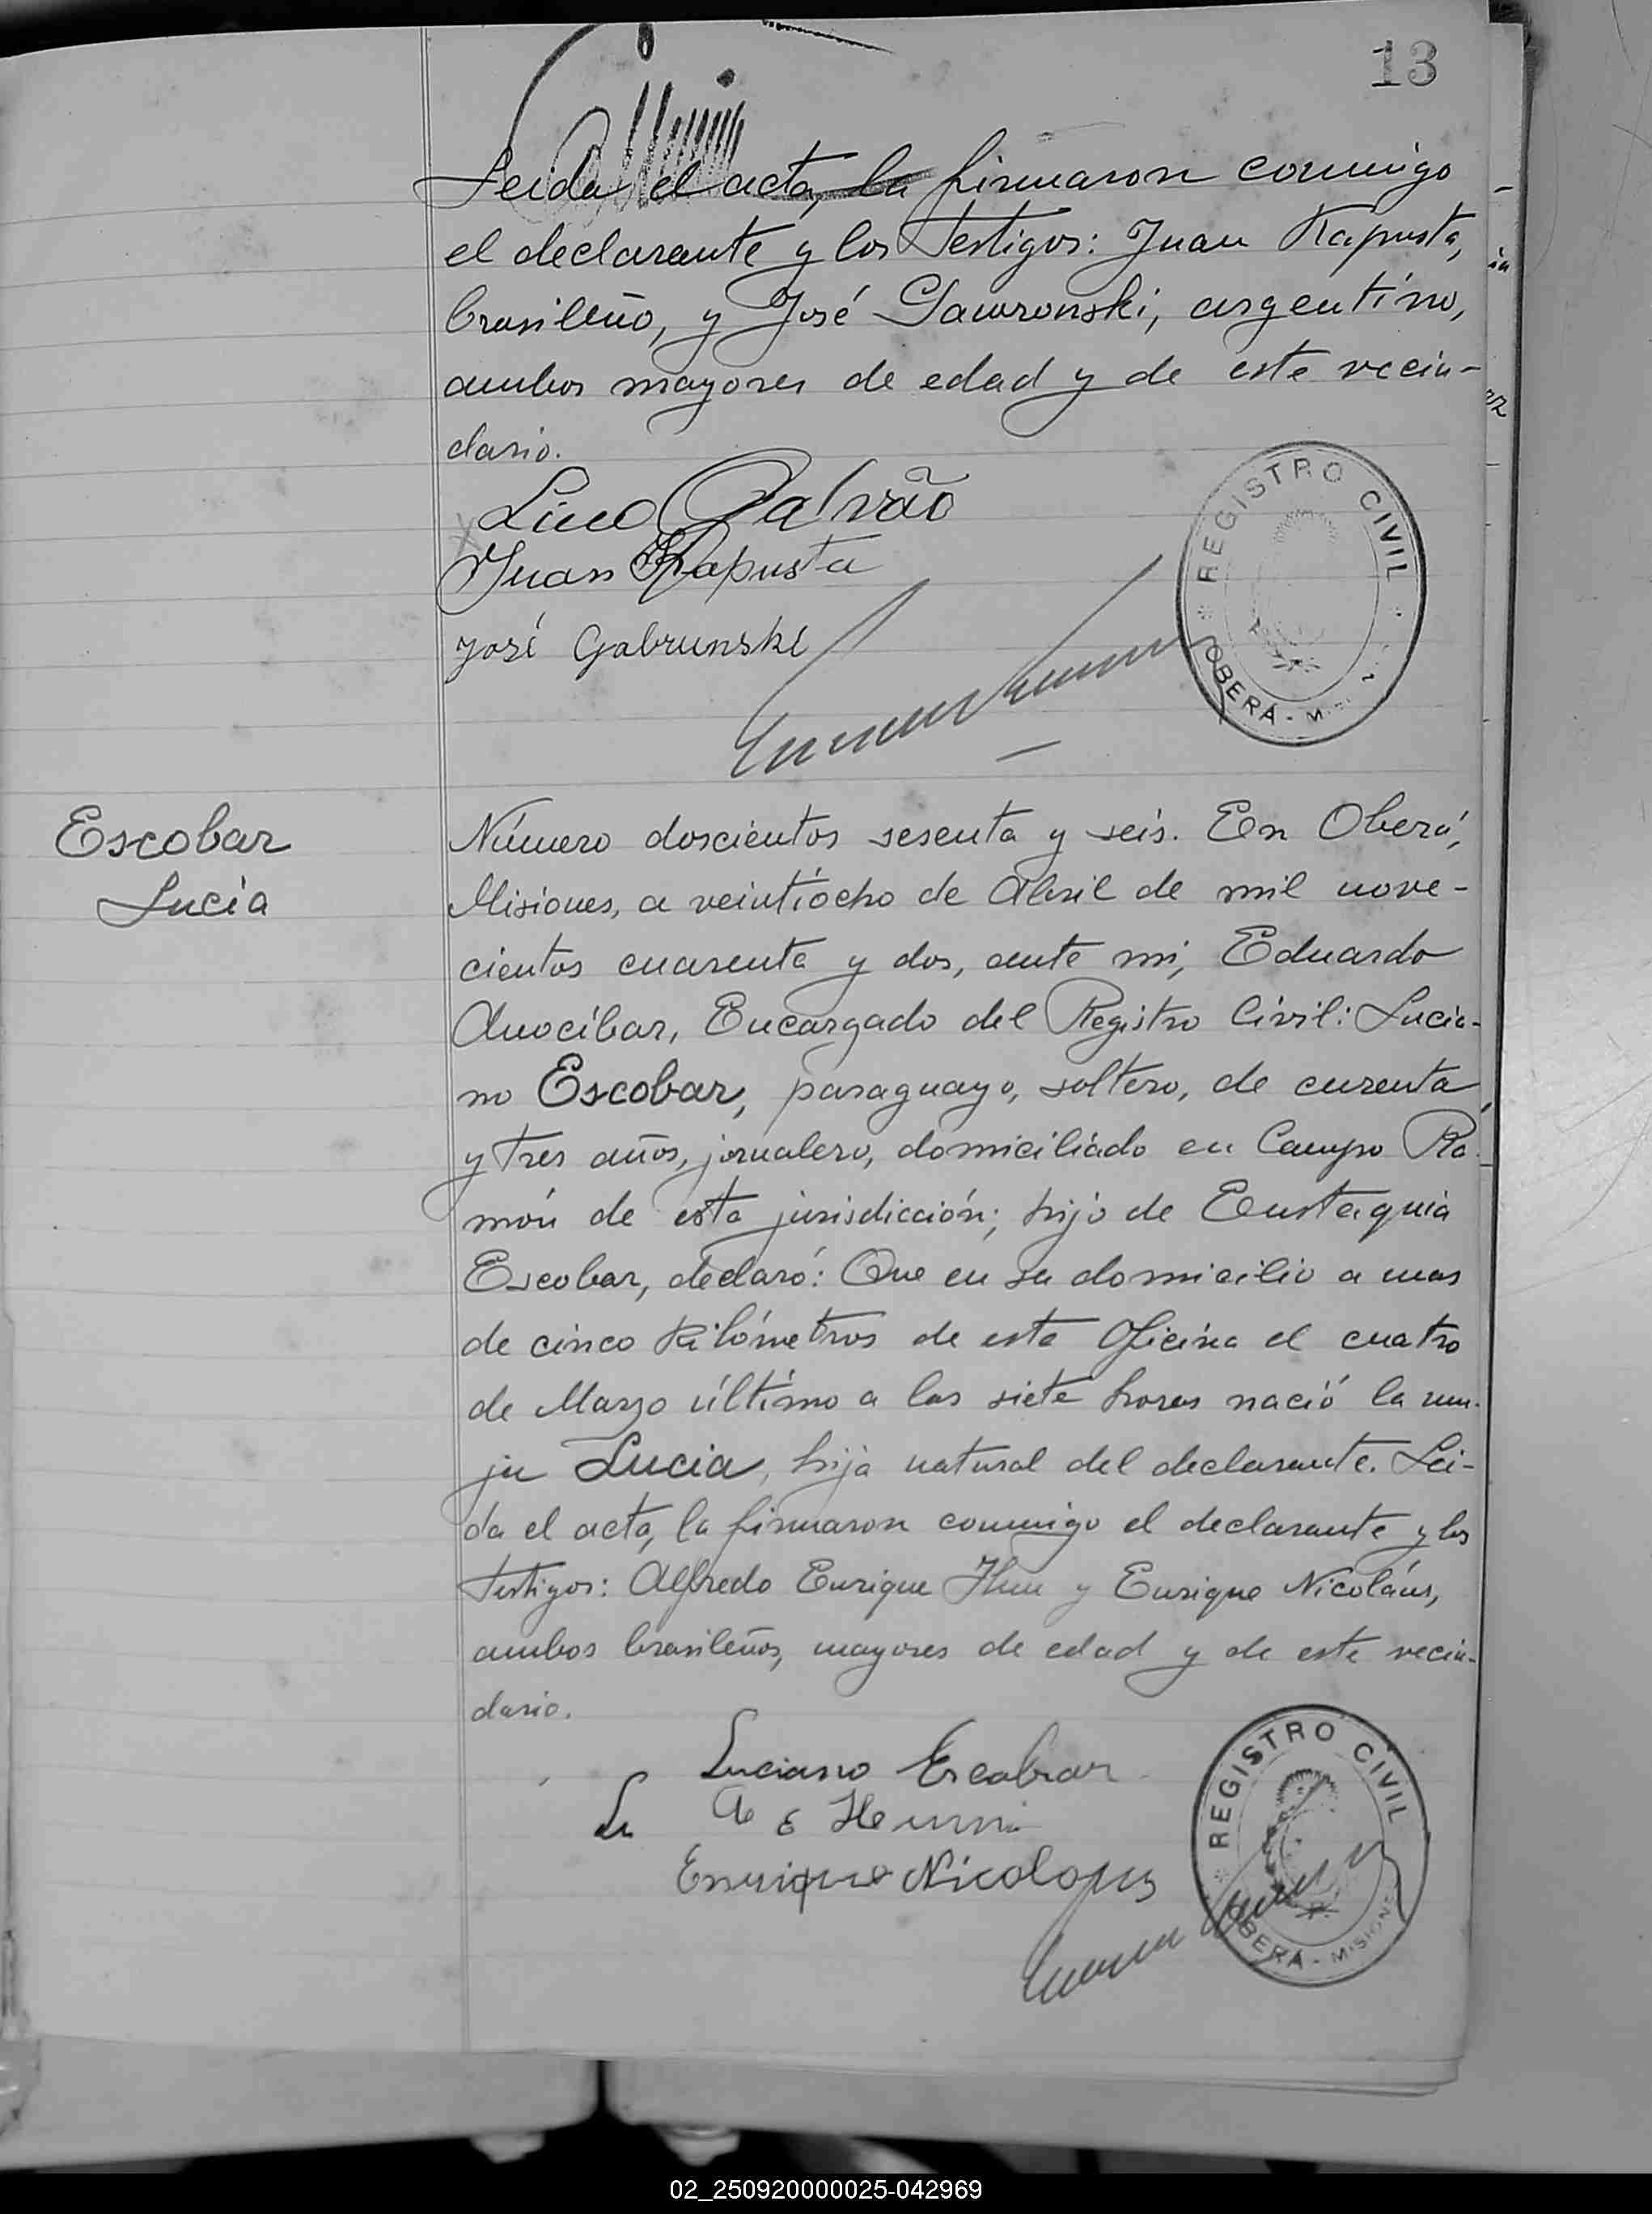 13
Leida el acta, la firmaron conmigo
el declarante y los testigos: Juan Kapusta,
brasileño, y José Gawronski, argentino,
ambos mayores de edad y de este vecin-
dario.
Lino Galvão
Juan Kapusta
José Gabrunski
REGISTRO CIVIL
OBERÁ - M
Escobar
Lucía
Número doscientos sesenta y seis. En Oberá,
Misiones, a veintiocho de Abril de mil nove-
cientos cuarenta y dos, ante mi, Eduardo
Anocíbar, Encargado del Registro Civil: Lucia-
no Escobar, paraguayo, soltero, de curenta
y tres años, jornalero, domiciliado en Campo Ra-
món de esta jurisdicción; hijo de Eustaquia
Escobar, declaró: Que en su domicilio a mas
de cinco kilómetros de esta Oficina el cuatro
de Marzo último a las siete horas nació la mu-
ju Lucia, hija natural del declarante. Lei-
da el acta, la firmaron conmigo el declarante y los
testigos: Alfredo Enrique y Enrique Nicoláus,
ambos brasileños, mayores de edad y de este vecin-
dario.
Luciano Escobar
A E
Enrique
REGISTRO CIVIL
OBERÁ - MISIONES
02_250920000025-042969